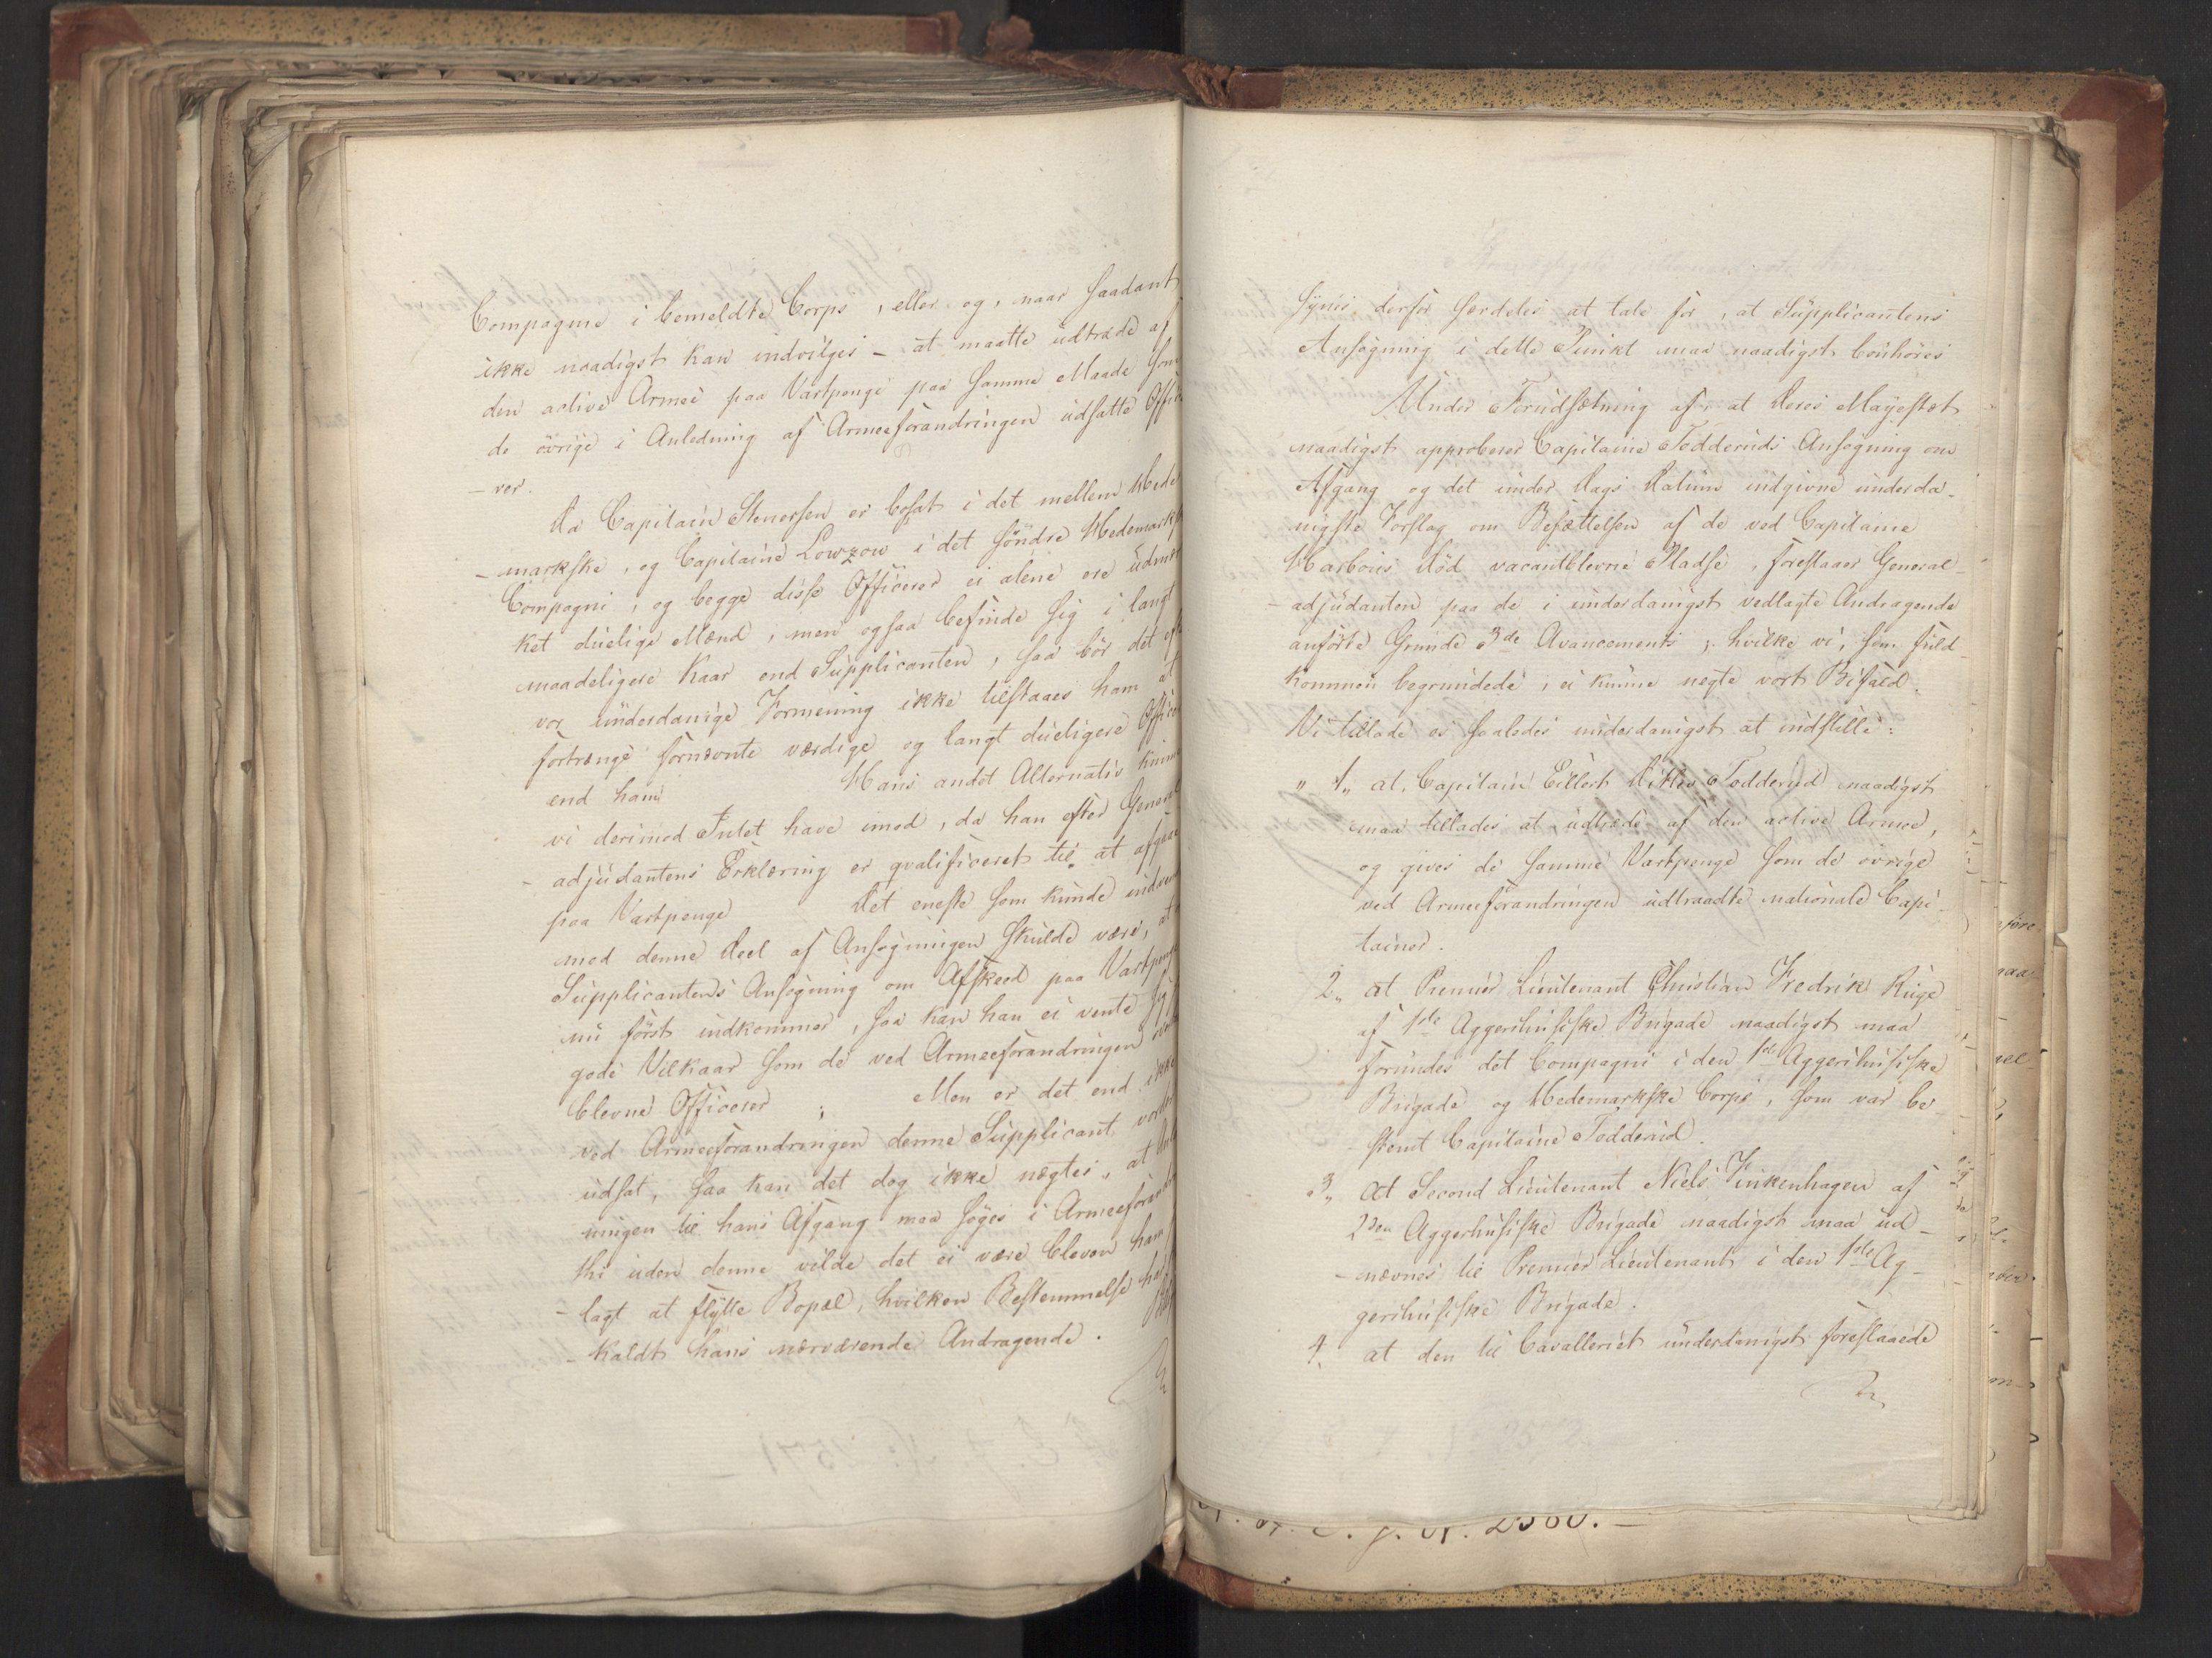 Compagnie i bemeldte Corps, eller og, naar saadant
ikke naadigst kan indvilges – at maatte udtræde af
den active Armee paa Vartpenge paa samme Maade som
de övrige i Anledning af Armeeforandringen udsatte Offi
– rer.
Da Capitain Stenersen er bosat i det mellem Hede
– markske, og Capitaine Lowzow i det söndre Hedemarkske
Compagni, og begge disse Officerer ei alene ere udmær
ket duelige Mænd, men ogsaa befinde sig i langt
maadeligere Kaar end Supplicanten, saa bör det ef
vor underdanige Formening ikke tilstaaes ham at
fortrænge fornævnte værdige og langt dueligere Office
end ham
Hans andet Alternativ kunne
vi derimod Intet have imod, da han efter General
– adjudantens Erklæring er qvalificeret til at afgaae
paa Vartpenge
Det eneste som kunde indvend
mod denne Deel af Ansögningen skulde være, at
Supplicantens Ansögning om Afskeed paa Vartpenge
nu först indkommer, saa kan han ei vente sig
gode Vilkaar som de ved Armeeforandringen
blevne Officerer ; Men er det end ikke
ved Armeeforandringen denne Supplicant vorden
udsat, saa kan det dog ikke nægtes, at Anled
ningen til hans Afgang maa söges i Armeeforandr
thi uden denne vilde det ei være bleven ham
– lagt at flytte Bopæl, hvilken Bestemmelse har
– kaldt hans nærværende Andragende.
Synes derfor særdeles at tale for, at Supplicantens
Ansögning i dette Punkt maa naadigst bönhöres
Under Forudsætning af, at Deres Mayestæt
naadigst approberer Capitaine Todderuds Ansögning om
Afgang og det under Dags Datum indgivne underda-
nigste Forslag om Besættelsen af de ved Capitaine
Harboes Död vacantblevne Pladse, foreslaaer General-
– adjudanten paa de i underdanigst vedlagte Andragende
anförte Grunde 3de Avancements; hvilke vi, som fuld-
kommen begrundede, ei kunne negte vort Bifald.
Vi tillade os saaledes underdanigst at indstille:
" 1" at, Capitain Eillert Ditlev Todderud naadigst
maa tillades at udtræde af den active Armee,
og gives de samme Vartpenge som de övrige
ved Armeeforandringen udtraadte nationale Capi-
tainer.
2" at Premier Lieutenant Christian Fredrik Ruge
af 1ste Aggershusiske Brigade naadigst maa
forundes det Compagni i den 1ste Aggershusiske
Brigade og Hedemarkske Corps, som var be-
stemt Capitaine Todderud.
3" at Second Lieutenant Niels Finkenhagen af
2den Aggershusiske Brigade naadigst maa ud-
– nævnes til Premier Lieutenant i den 1ste Ag-
gershusiske Brigade.
4. at den til Cavalleriet underdanigst foreslaaede
J. N. 2580. –